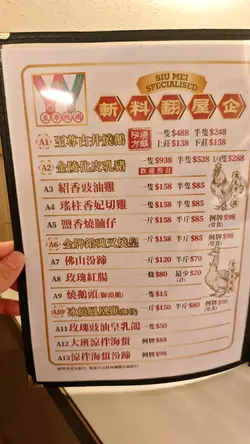 SIU MEI
SPECIALISED
斬料翻屋企
A1 至尊古井燒鵝 一隻$488 半隻$248
上莊$138 下莊$158
A2 一隻$938 半隻$528 1/4隻$288
歡迎預訂
A3 紹香豉油雞 一隻$158 半隻$85
A4 瑤柱香妃切雞 一隻$158 半隻$85
A5 鹽香燒腩仔 一斤$158 半斤$85 例牌$98
(堂食)
A6 一斤$158 半斤$85 例牌$98
(堂食)
A7 佛山汾蹄 一斤$120 半斤$70
A8 玫瑰紅腸 一條$80 最少$20
A9 燒鵝頭 一隻$15
A10 一斤$150 半斤$80 例牌$98
(堂食)
A11 玫瑰豉油皇乳鴿 一隻$50
A12 大班涼拌海蜇 例牌$88
A13 涼拌海蜇汾蹄 例牌$98